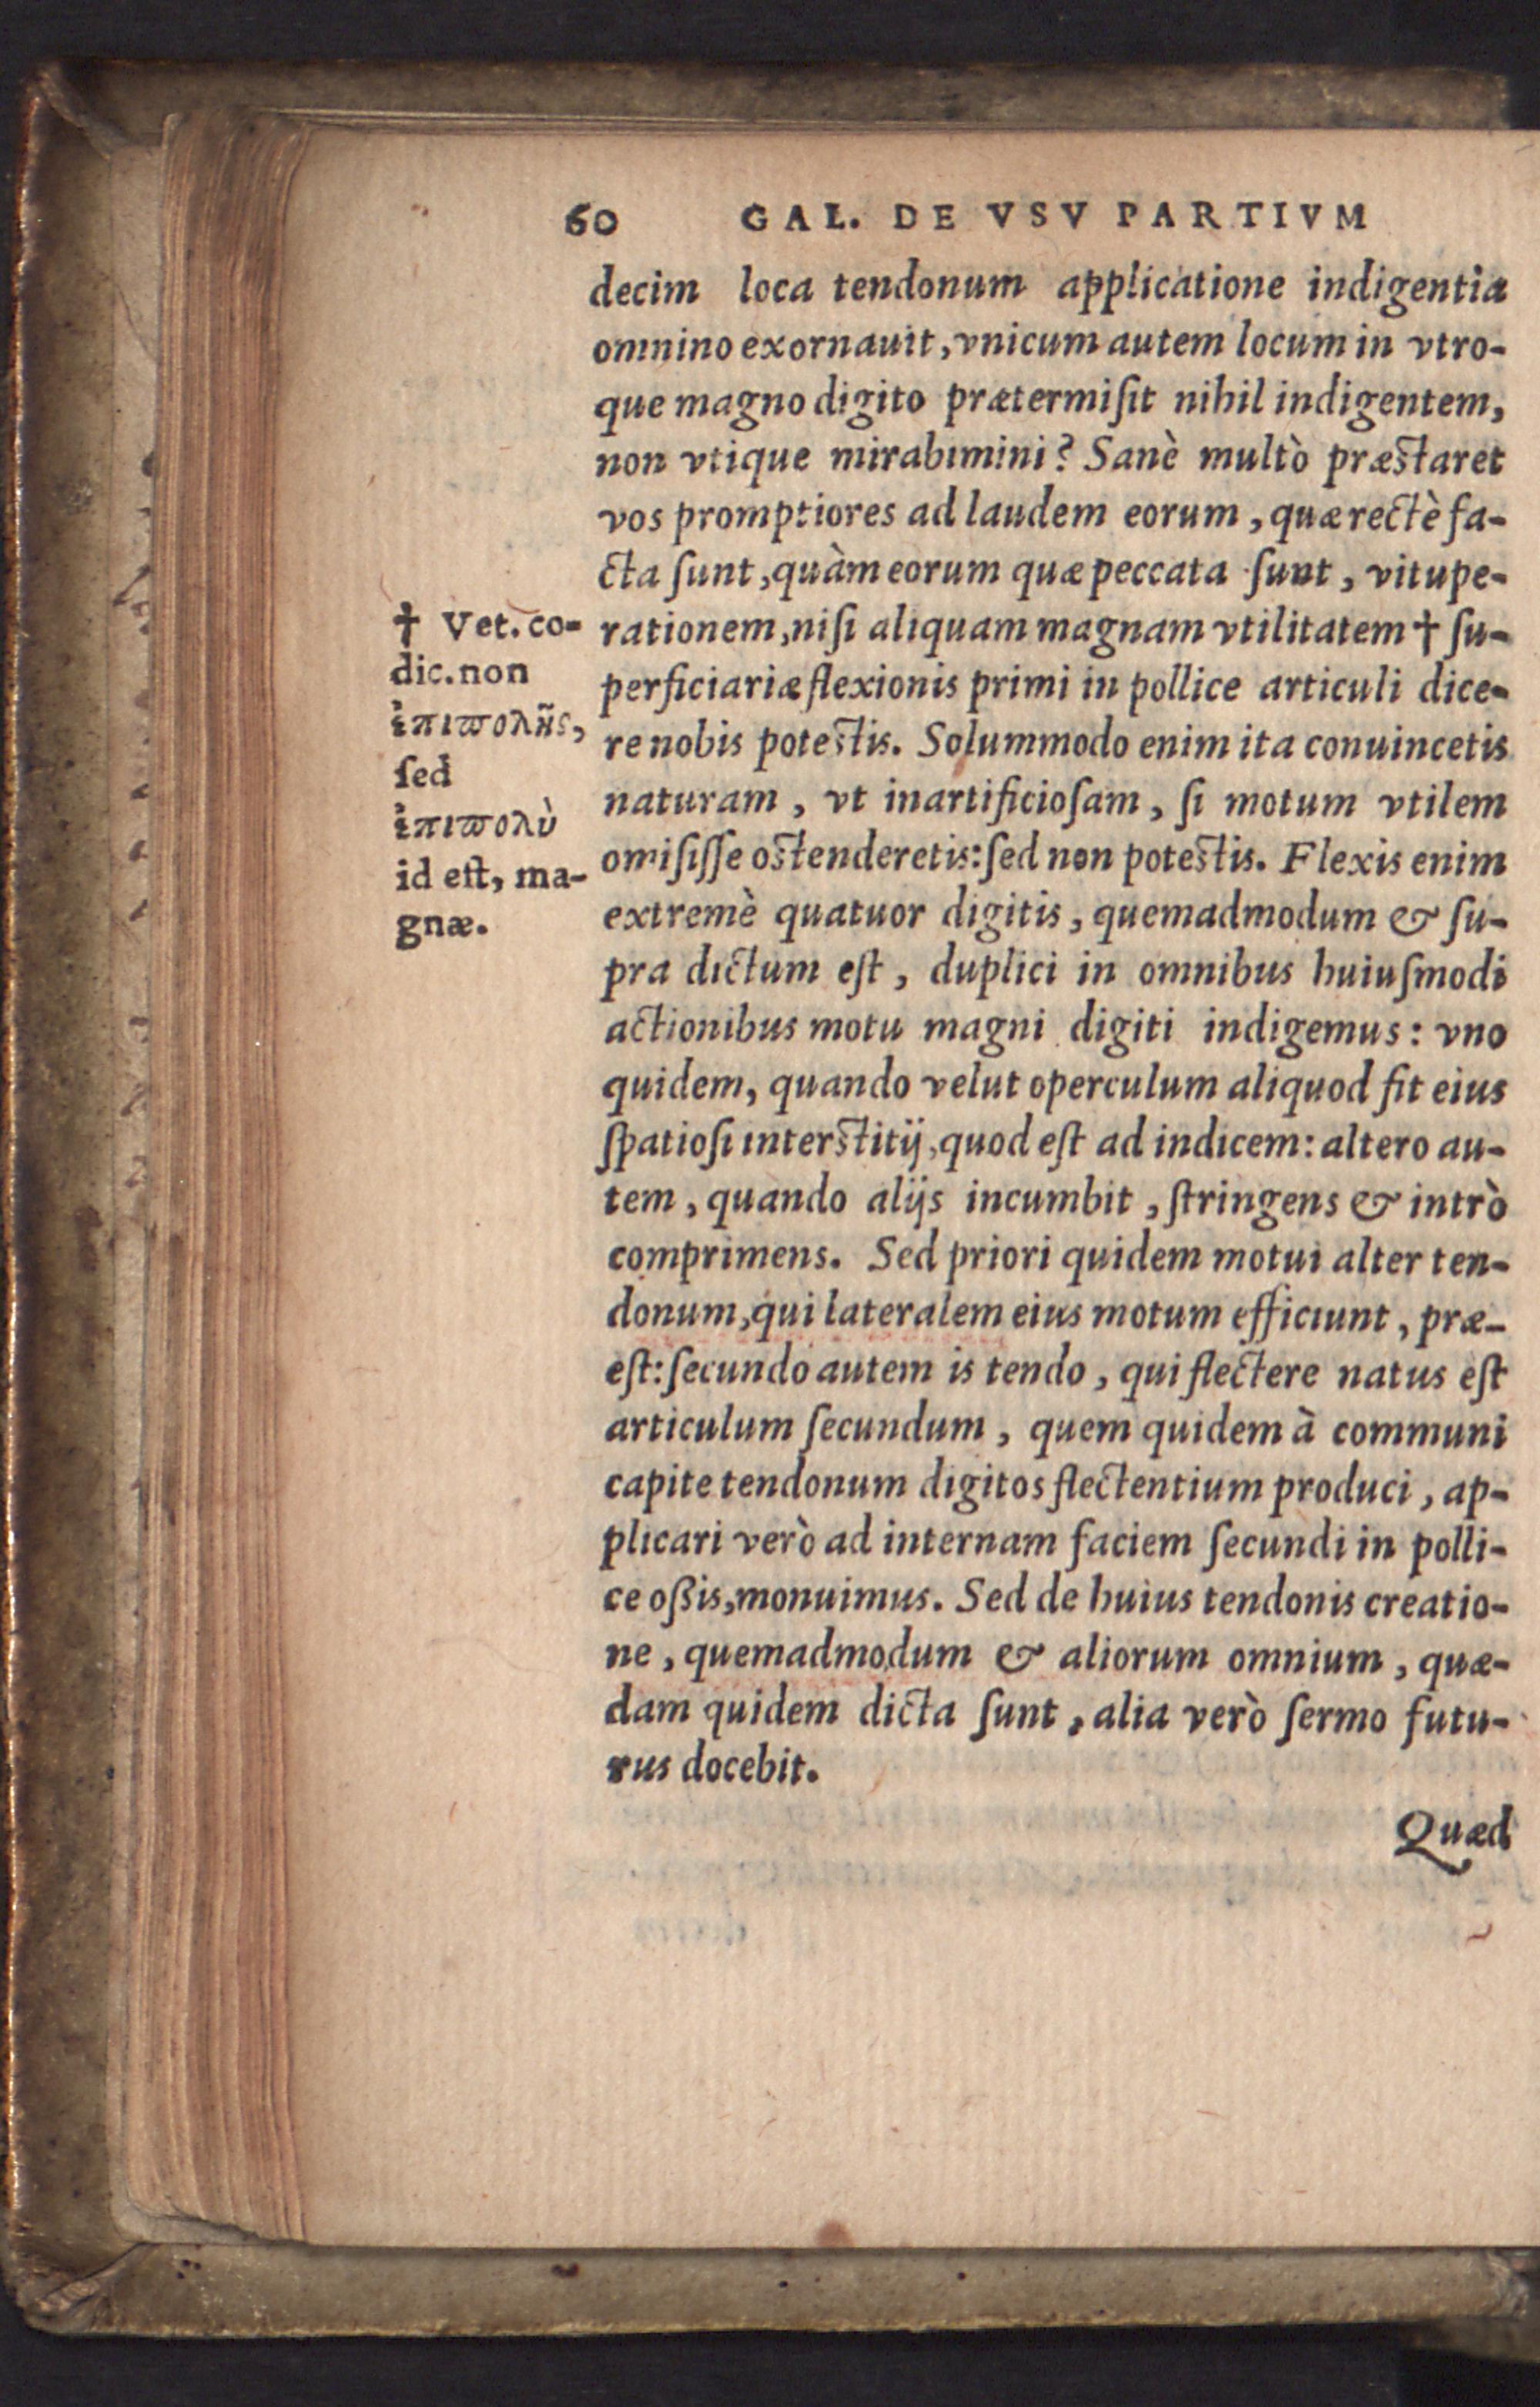 60 GAL. DE VSV PARTIVM
decim loca tendonum applicatione indigentia
omnino exornauit, vnicum autem locum in vtro-
que magno digito prætermiſit nihil indigentem,
non vtique mirabimini? Sanè multò præſtaret
vos promptiores ad laudem eorum, quæ rectè fa-
cta ſunt, quàm eorum quæ peccata ſunt, vitupe-
rationem, niſi aliquam magnam vtilitatem † ſu-
perficiariæ flexionis primi in pollice articuli dice-
re nobis poteſtis. Solummodo enim ita conuincetis
naturam, vt inartificioſam, ſi motum vtilem
omiſiſſe oſtenderetis: ſed non poteſtis. Flexis enim
extremè quatuor digitis, quemadmodum & ſu-
pra dictum eſt, duplici in omnibus huiuſmodi
actionibus motu magni digiti indigemus: vno
quidem, quando velut operculum aliquod fit eius
ſpatioſi interſtitij, quod eſt ad indicem: altero au-
tem, quando alijs incumbit, ſtringens & intrò
comprimens. Sed priori quidem motui alter ten-
donum, qui lateralem eius motum efficiunt, præ-
eſt: ſecundo autem is tendo, qui flectere natus eſt
articulum ſecundum, quem quidem à communi
capite tendonum digitos flectentium produci, ap-
plicari verò ad internam faciem ſecundi in polli-
ce oßis, monuimus. Sed de huius tendonis creatio-
ne, quemadmodum & aliorum omnium, quæ-
dam quidem dicta ſunt, alia verò ſermo futu-
rus docebit.
Quæd
† Vet. co-
dic. non
ἐπιπολῆς,
ſed
ἐπιπολὺ
id eſt, ma-
gnæ.